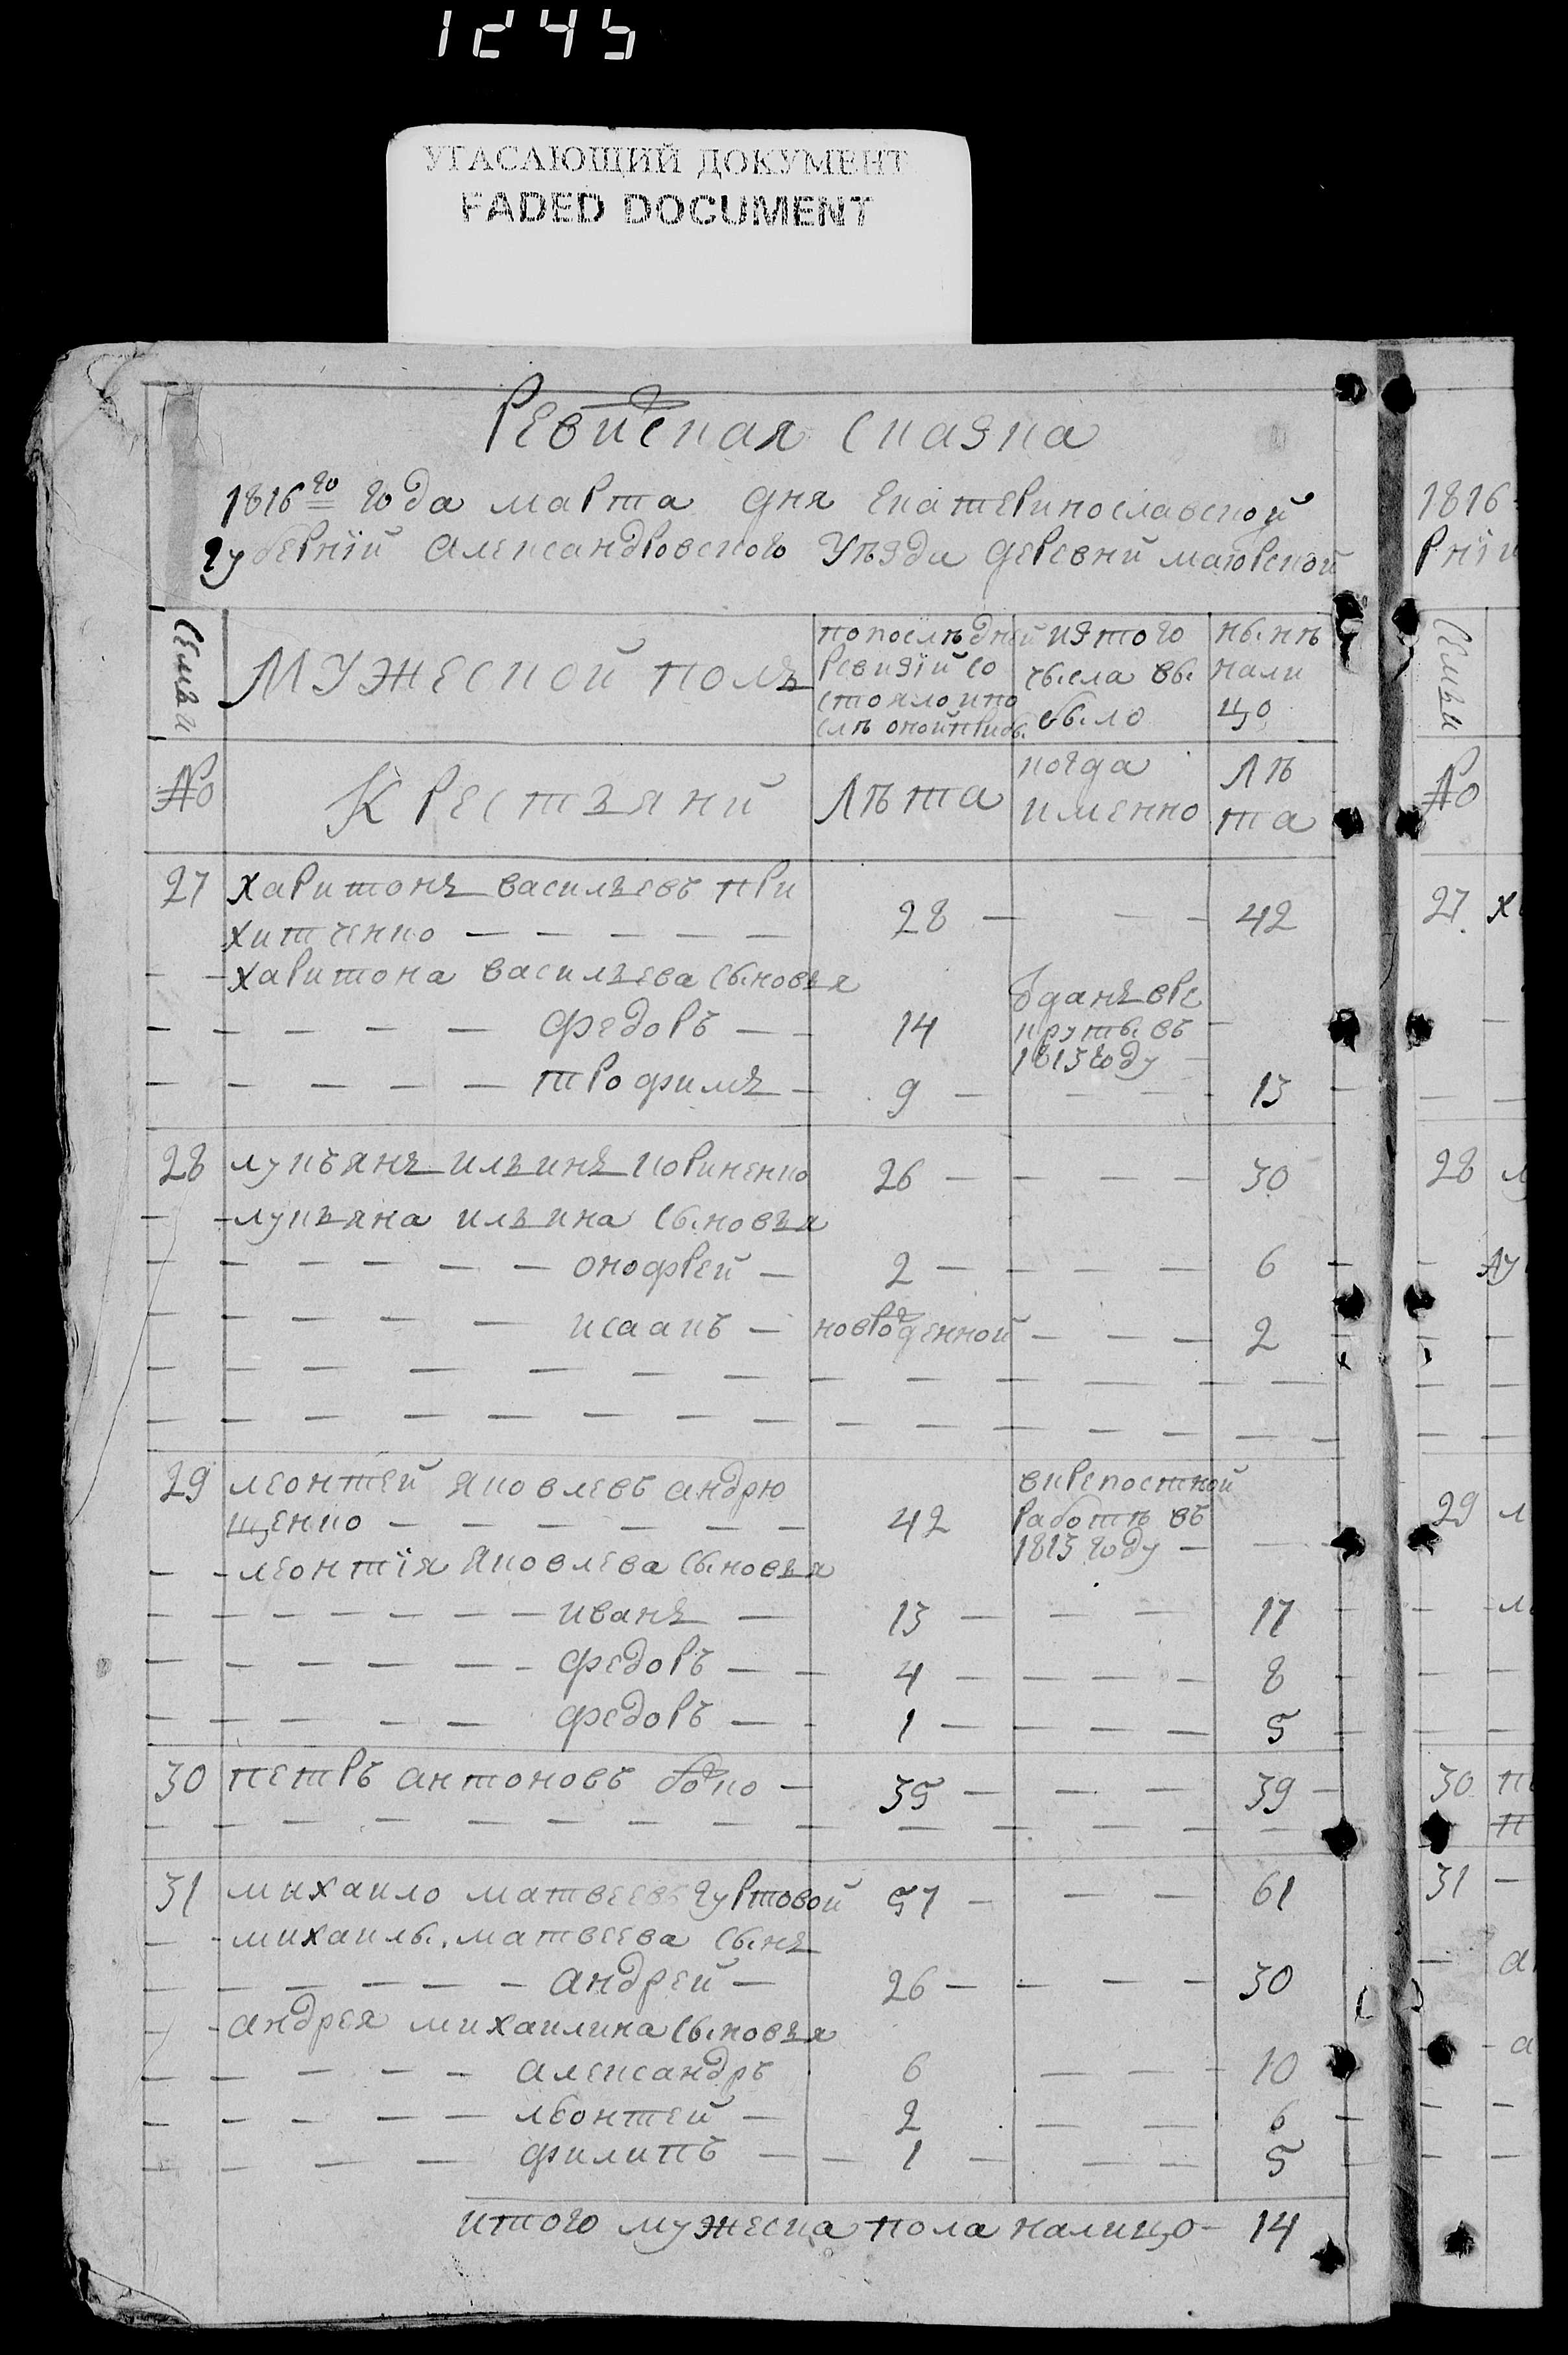 1245
УГАСАЮЩИЙ ДОКУМЕНТ
FADED DOCUMENT
Ревиская сказка
1816го года марта дня екатеринославской
губернїй александровского уѣзда деревни маюрской
Семьи
мужеской полъ
по послѣдней ревизїй состояло и послѣ оной прибы.
из того числа выбыло
нынѣ налицо
№
крестьяни
Лѣта
когда именно
Лѣта
27 харитонъ васильевъ при
хитченко — — — — — 28 — — — 42
харитона васильева сыновья
федоръ — 14 отданъ в рекруты въ 1813 году
трофимъ — 9 — — — 13
28 лукьянъ ильинъ кориненко 26 — — — 30
лукьяна ильина сыновья
онофрей — 2 — — — 6
исаакъ — новорожденной — — — 2
29 леонтей яковлевъ андрю
щенко — — — — — — 42 в крепостной работѣ въ 1813 году —
леонтїя яковлева сыновья
иванъ — 13 — — — 17
федоръ — 4 — — — 8
федоръ — 1 — — — 5
30 петръ антоновъ бойко — 35 — — — 39
31 михаило матвеевъ гуртовой 57 — — — 61
михаилы матвеева сынъ
андрей — 26 — — — 30
андрея михаилина сыновья
александръ 6 — — — 10
леонтей — 2 — — 6
филипъ — 1 — — — 5
итого мужеска пола налицо — 14
1816
рнїи
Семьи
№
27
28
29
30
31